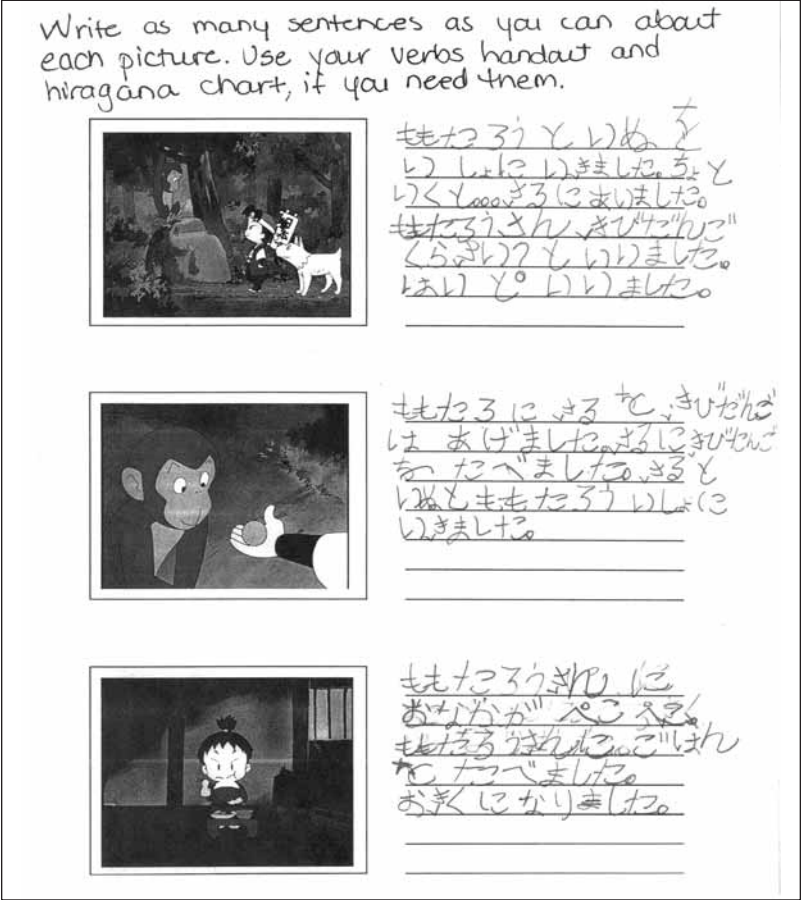 Write as many sentences as you can about
each picture. Use your verbs handout and
hiragana chart, if you need them.
ももたろう と いぬ を
いっしょに いきました。ちょと
いくと。。。さるにあいました。
ももたろうさん、きびだんご
くらさい？といいました。
はい と。いいました。
ももたろ に さる を きびだんご
は あげました。さるにきびだんご
を たべました。さると
いぬとももたろう いしょに
いきました。
ももたろうさん に
おなかが ぺこ ぺこ。
ももたろうさんに。ごはん
を たべました。
おきくになりました。